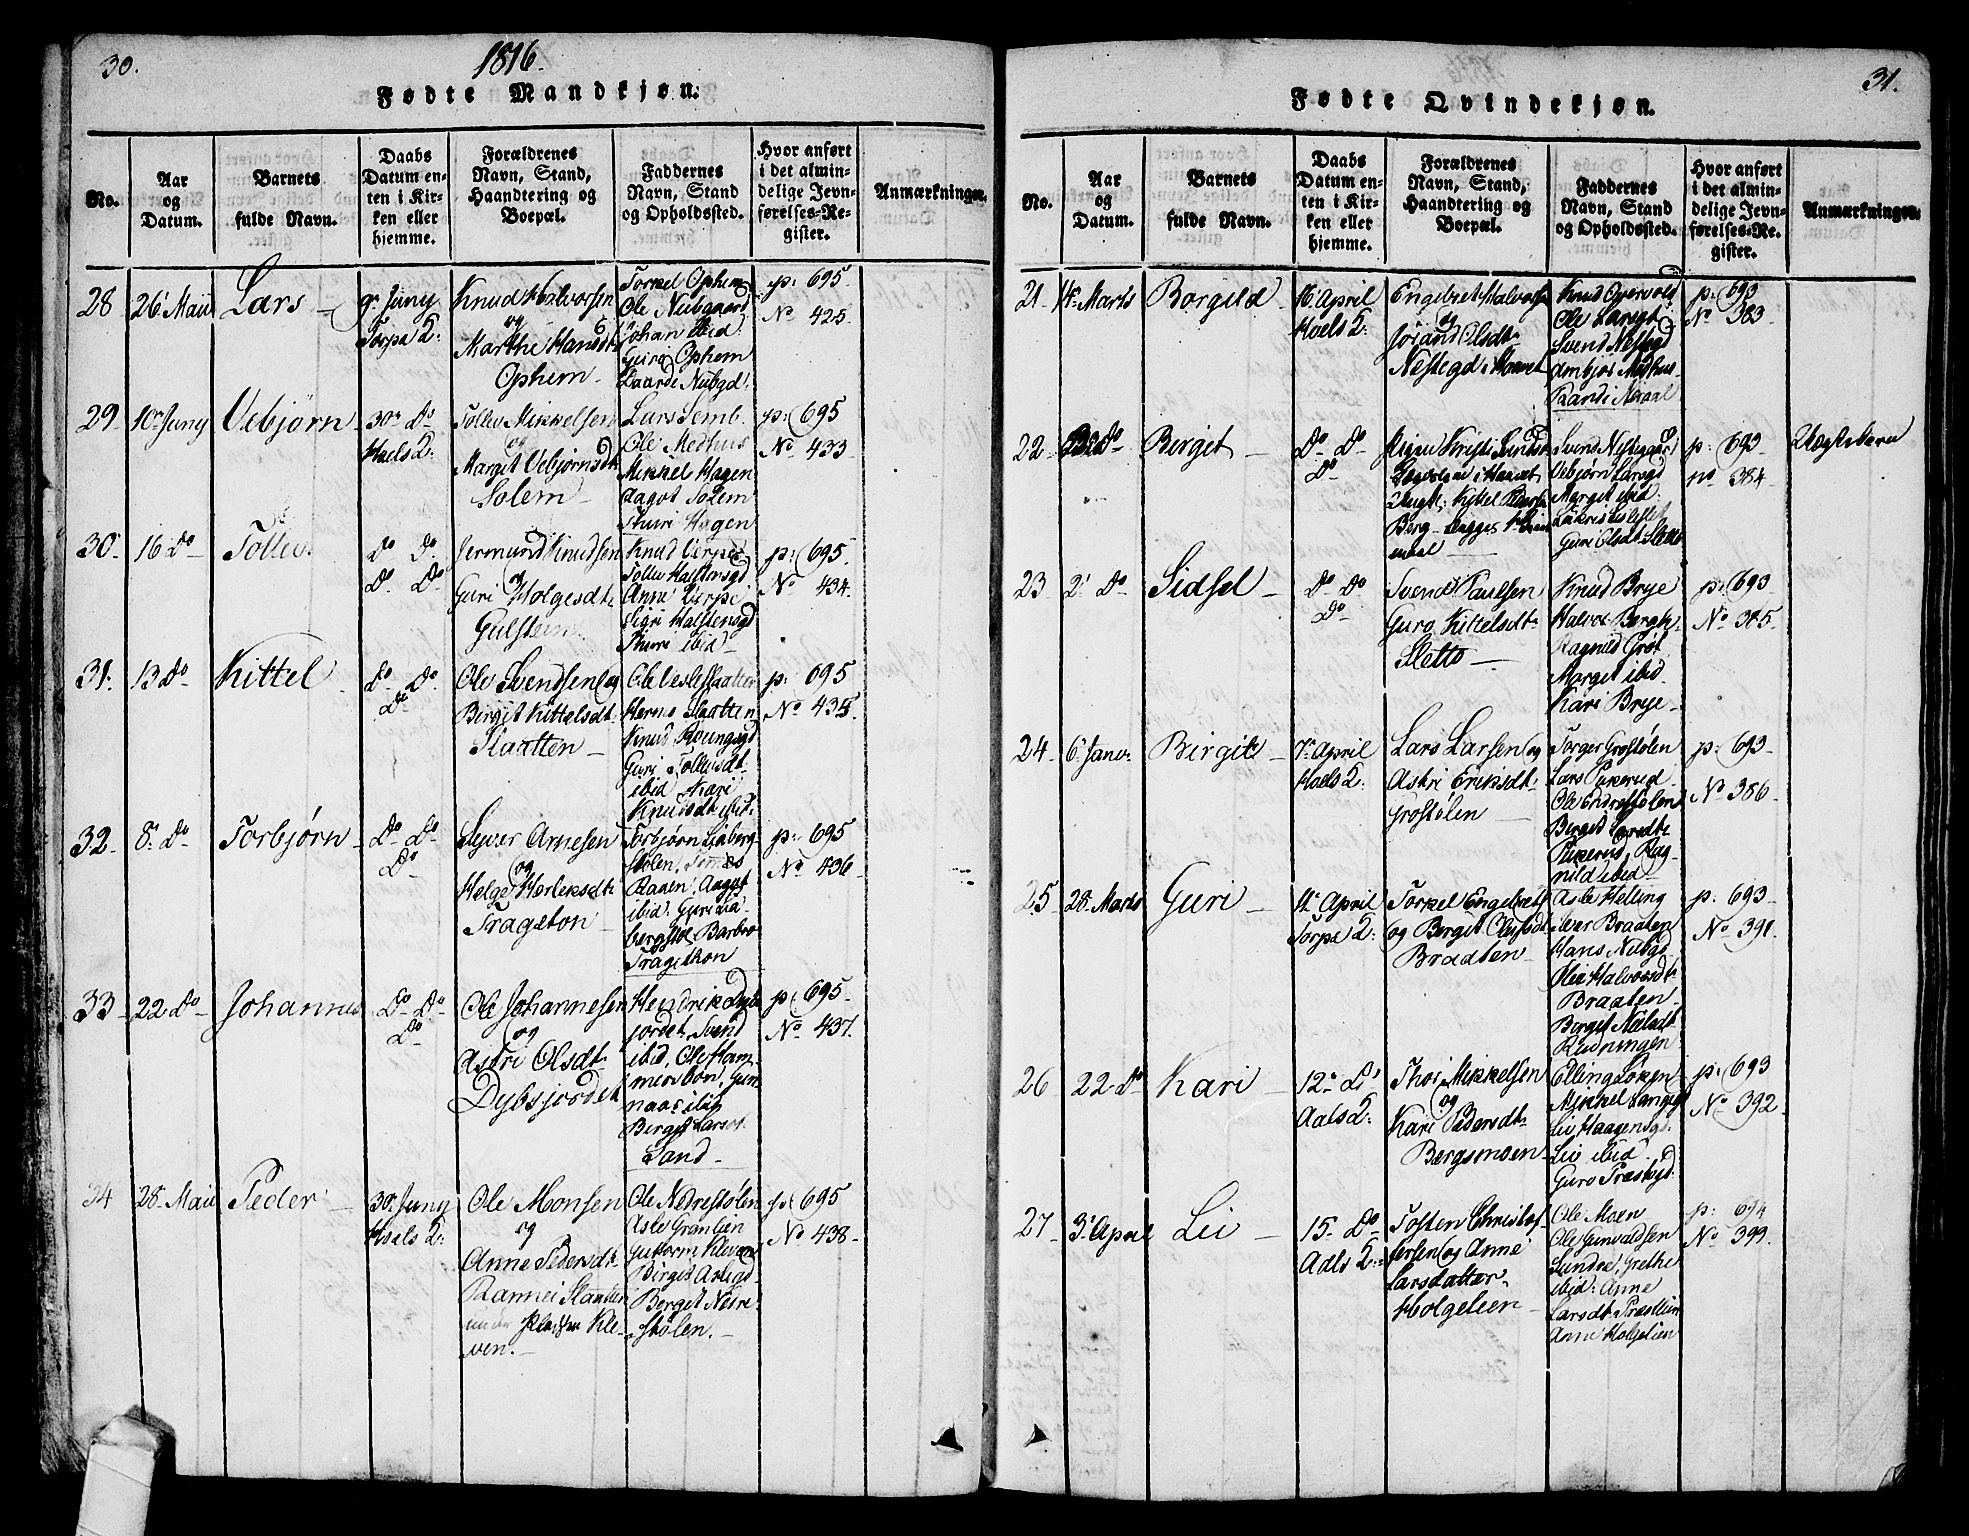 30.
1816.
Fødte Mandkjøn.
No.
Aar
og
Datum.
Barnets
fulde Navn.
Daabs
Datum en-
ten i Kir-
ken eller
hjemme.
Forældrenes
Navn, Stand,
Haandtering og
Boepæl.
Faddernes
Navn, Stand
og Opholdssted.
Hvor anført
i det almin-
delige Jevn-
førelses-Re-
gister.
Anmærkninger.
28
26 Maii
Lars
9 Juny
Torpe 2:
Knud Halvorsen
og
Marthe Hansdt
Ophem
Torkel Ophem
Ole Nubgaard
Johan ibid
Guro Ophem
Nubgd.
p: 695
No 425.
29
10 Juny
Vebjørn
30 Do
Hoels 2:
Tollev Mikkelsen
og
Marget Vebjørnsdt
Solem
Lars Semb
Ole Medhus
Mikkel Hagen
Aagot Solem
Thuri Hagen
p: 695
No 433
30
16 Do
Tollev
Do Do
Do Do
Jermund Knudsen
og
Guri Holgesdt
Gulstein
Knud Verpe
Tollev Halstensgd
Anne Verpe
Sigri Halstensgd
Thuri ibid
p: 695
No 434.
31.
13 Do
Kittel
Do Do
Do
Ole Svendsen og
Birgit Kittelsdt
Slaatten
Ole Slaatten
Slaatten
Knud
Guri Tollevsdt
ibid Kari
Knudsdt ibid.
p: 695
No 435.
32
8 Do
Torbjørn
Do Do
Do
Syver Arnesen
og
Helge Herleksdt
Trageton
Torbjørn Liaberg-
stølen, Tomas
Raaen, Aagot
ibid: Guri Lia
bergstøl Barbro
Tragethon
p: 695
No 436
33
22 Do
Johannes
Do Do
Do
Ole Johannesen
og
Astri Olsdt
Dybsjordet
Hendrik Dybs
jordet, Svend
ibid, Ole Ham-
mersbøn, Gun
naar ibid
Berget Larsdt
Sand
p: 695
No 437.
34
28 Maii
Peder
30 Juny
Hoels 2:
Ole Monsen
og
Anne Pedersdt
Rannei
Kle-
ven.
Ole Nedrestølen
Asle Grønlien
Guttorm Kleven
Birget
Berget Nedre-
stølen.
p: 695
No 438.
31.
Fødte Qvindekjøn.
No.
Aar
og
Datum.
Barnets
fulde Navn.
Daabs
Datum en-
ten i Kir-
ken eller
hjemme.
Forældrenes
Navn, Stand,
Haandtering og
Boepæl.
Faddernes
Navn, Stand
og Opholdssted.
Hvor anført
i det almin-
delige Jevn-
førelses-Re-
gister.
Anmærkninger.
21
14 Marts
Borgild
16 April
Hoels 2:
Engebret Halvorsen
og
Jørand Olsdt
Nestegd i Hovet
Knud Opervold
Ole
Svend Nestegd
Ambjør Medhus
p: 693
No 383.
22
Do
Berget
Do Do
Do
Pigen Kristi Svendsdt
Ungk: Kittel
Berg
Svend Nestegaard
Vebjørn Larsgd
Marget ibid:
Guri Olsdt Sletto
p: 693
no 384.
Uægtebarn
23
2 Do
Sidsel
Do Do
Do
Svend Paulsen
Guro Kittelsdt
Sletto
Knud Brye
Halvor Bergh
Ragnild Grøt
Marget ibid
Kari Brye
p: 693
No 385.
24
6 Janr.
Birgit
7 April
Hoels 2:
Lars Larsen og
Astri Eriksdt
Grostølen
Torger Grostølen
Lars Pukerud
Ole Endrestølen
Berget
Pukerud, Rag-
nild ibid
p: 693
No 386.
25
28 Marts
Guri
14 April
Torpe 2:
Torkel Engebrets
og Berget Olufsdt
Braaten
Asle Helling
Iver Braaten
Hans Nubgd
Olea Halvorsdt
Braaten
Berget Nielsdt
Rudningen
p: 693
No 391.
26
22 Do
Kari
12 Do
Aals 2:
Thor Mikkelsen
og
Kari Pedersdt
Bergsmoen
Elling Løken
Mikkel Langegd
Liv Haagensgd.
Liv ibid
Guro Præstgd.
p: 693
No 392.
27
3 April
Lei
15 Do
Aals 2:
Tosten Christof-
fersen og Anne
Larsdatter
Holgelien
Ole Moen
Ole Gunvaldsen
Sundre, Grethe
ibid: Anne
Larsdt Præstlien
Anne Holgelien
p: 694
No 399.